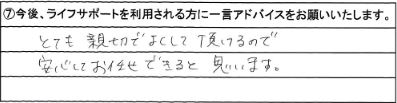 ⑦今後、ライフサポートを利用される方に一言アドバイスをお願いいたします。
とても親切でよくして頂けるので
安心してお任せできると思います。